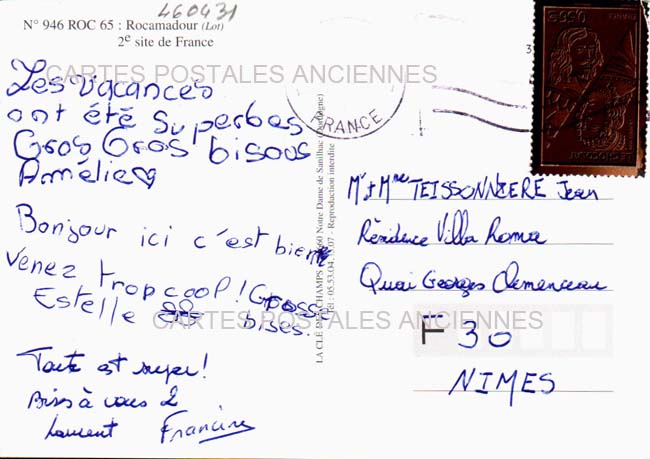 460431
N° 946 ROC 65 : Rocamadour (Lot)
2e site de France
CARTES POSTALES ANCIENNES
Les vacances
ont été superbes
Gros Gros bisous
Amélie
Bonjour ici c'est bien
Venez trop cool! Grosse
Estelle bises.
Toute est super!
Bises à vous 2
Laurent Francine
LA CLÉ DES CHAMPS 24660 Notre Dame de Sanilhac (Dordogne)
Tél : 05.53.04. 07 - Reproduction interdite
FRANCE
0,55€
Mr et Mme TEISSONNIERE Jean
Résidence Villa Roma
Quai Georges Clemenceau
CARTES POSTALES ANCIENNES
F 30
NIMES